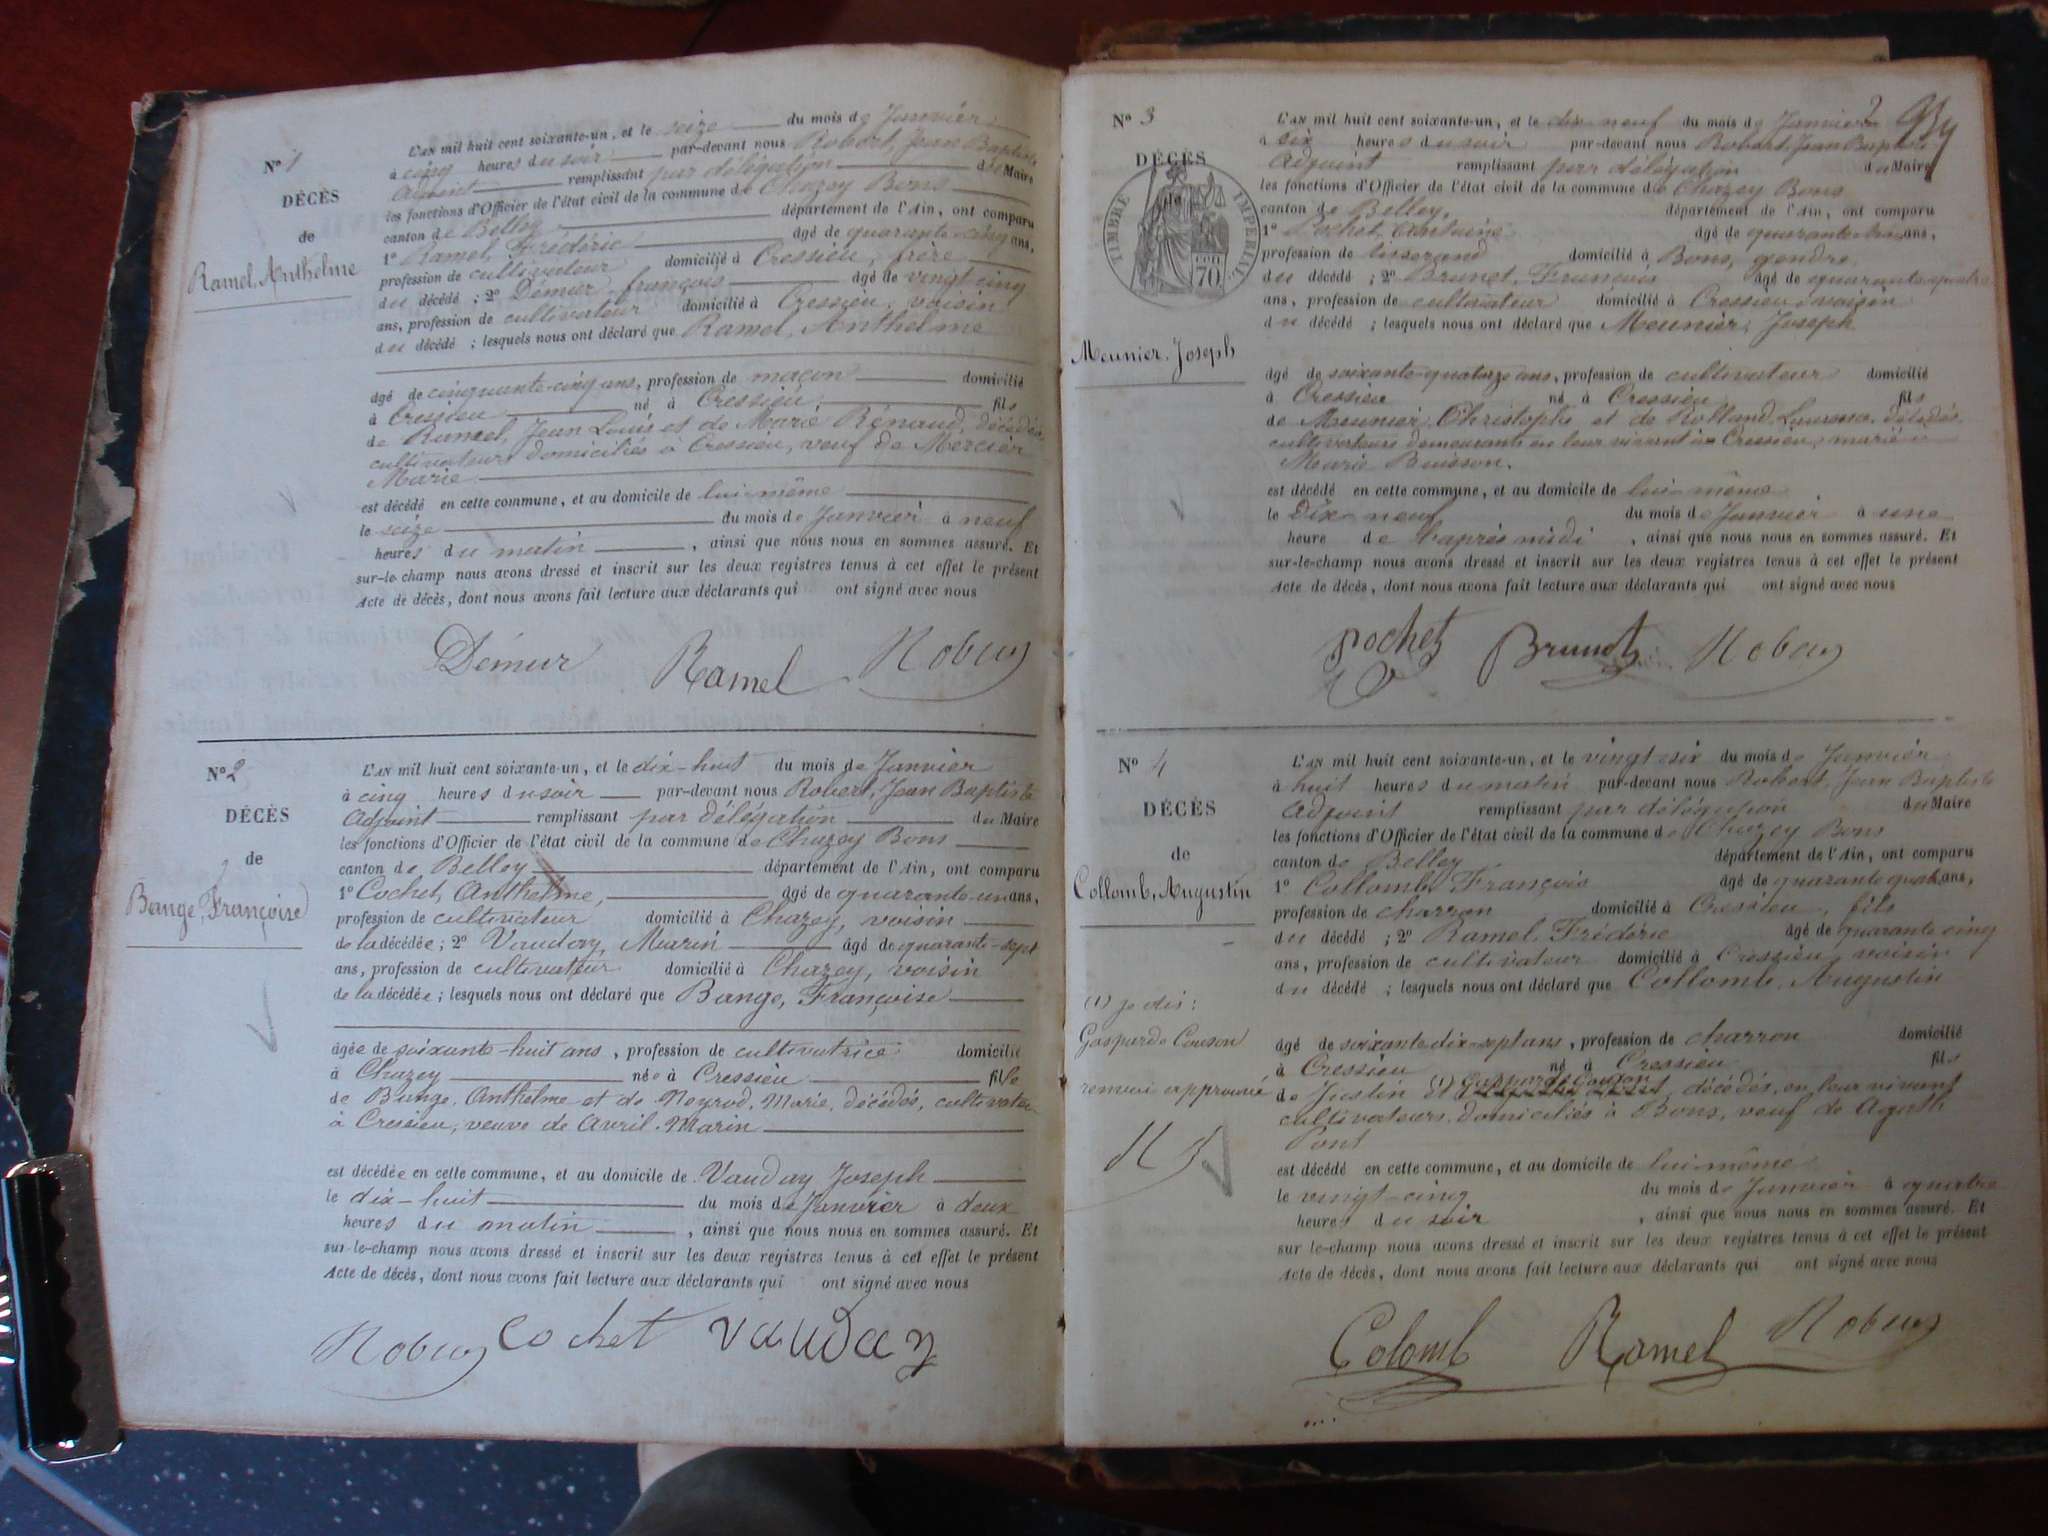 N° 1
DÉCÈS
de
Ramel, Anthelme
L'AN mil huit cent soixante-un, et le seize du mois de Janvier
à cinq heures du soir par-devant nous Robert, Jean Baptiste,
Adjoint remplissant par délégation du Maire
les fonctions d'Officier de l'état civil de la commune de Chazey Bons
canton de Belley département de l'Ain, ont comparu
1° Ramel, Frédéric âgé de quarante-cinq ans,
profession de cultivateur domicilié à Cressieu, frère
du décédé ; 2° Démur, françois âgé de vingt cinq
ans, profession de cultivateur domicilié à Cressieu, voisin
du décédé ; lesquels nous ont déclaré que Ramel, Anthelme
âgé de cinquante-cinq ans, profession de maçon domicilié
à Cressieu né à Cressieu fils
de Ramel, Jean Louis et de Marie Rénaud, décédés,
cultivateurs domiciliés à Cressieu, veuf de Mercier
Marie
est décédé en cette commune, et au domicile de lui-même
le seize du mois de Janvier à neuf
heures du matin , ainsi que nous nous en sommes assuré. Et
sur-le-champ nous avons dressé et inscrit sur les deux registres tenus à cet effet le présent
Acte de décès, dont nous avons fait lecture aux déclarants qui ont signé avec nous
Démur Ramel Robert
N° 2
DÉCÈS
de
Bange, Françoise
L'AN mil huit cent soixante-un, et le dix-huit du mois de Janvier
à cinq heures du soir par-devant nous Robert, Jean Baptiste
Adjoint remplissant par délégation du Maire
les fonctions d'Officier de l'état civil de la commune de Chazey Bons
canton de Belley département de l'Ain, ont comparu
1° Cochet, Anthelme, âgé de quarante-un ans,
profession de cultivateur domicilié à Chazey, voisin
de la décédée ; 2° Vauday, Marin âgé de quarante-sept
ans, profession de cultivateur domicilié à Chazey, voisin
de la décédée ; lesquels nous ont déclaré que Bange, Françoise
âgée de soixante-huit ans, profession de cultivatrice domicilié
à Chazey née à Cressieu fille
de Bange, Anthelme et de Neyrod, Marie, décédés, cultivateurs
à Cressieu, veuve de Avril Marin
est décédée en cette commune, et au domicile de Vauday Joseph
le dix-huit du mois de Janvier à deux
heures du matin , ainsi que nous nous en sommes assuré. Et
sur-le-champ nous avons dressé et inscrit sur les deux registres tenus à cet effet le présent
Acte de décès, dont nous avons fait lecture aux déclarants qui ont signé avec nous
Robert cochet vauday
N° 3
DÉCÈS
de
TIMBRE IMPERIAL
70
Meunier, Joseph
2
L'AN mil huit cent soixante-un, et le dix-neuf du mois de Janvier
à six heures du soir par-devant nous Robert, Jean Baptiste
Adjoint remplissant par délégation du Maire
les fonctions d'Officier de l'état civil de la commune de Chazey Bons
canton de Belley, département de l'Ain, ont comparu
1° Pochet, Antoine âgé de quarante-trois ans,
profession de tisserand domicilié à Bons, gendre
du décédé ; 2° Brunet, François âgé de quarante-quatre
ans, profession de cultivateur domicilié à Cressieu, voisin
du décédé ; lesquels nous ont déclaré que Meunier, Joseph
âgé de soixante-quatorze ans, profession de cultivateur domicilié
à Cressieu né à Cressieu fils
de Meunier, Christophe et de Rolland, Laurence, décédés,
cultivateurs demeurants en leur vivant à Cressieu, marié à
Marie Buisson.
est décédé en cette commune, et au domicile de lui-même
le Dix-neuf du mois de Janvier à une
heure de l'après midi , ainsi que nous nous en sommes assuré. Et
sur-le-champ nous avons dressé et inscrit sur les deux registres tenus à cet effet le présent
Acte de décès, dont nous avons fait lecture aux déclarants qui ont signé avec nous
pochet Brunet Robert
N° 4
DÉCÈS
de
Collomb, Augustin
(1) je dis:
Gasparde Couson
renvoi approuvé
L'AN mil huit cent soixante-un, et le vingt six du mois de Janvier
à huit heures du matin par-devant nous Robert, Jean Baptiste
Adjoint remplissant par délégation du Maire
les fonctions d'Officier de l'état civil de la commune de Chazey Bons
canton de Belley département de l'Ain, ont comparu
1° Collomb, François âgé de quarante quatre ans,
profession de charron domicilié à Cressieu, fils
du décédé ; 2° Ramel, Frédéric âgé de quarante cinq
ans, profession de cultivateur domicilié à Cressieu, voisin
du décédé ; lesquels nous ont déclaré que Collomb, Augustin
âgé de soixante dix-sept ans, profession de charron domicilié
à Cressieu né à Cressieu fils
de Justin et (1) Gasparde Couson décédés, en leur vivant
cultivateurs, domiciliés à Bons, veuf de Agath
Pont
est décédé en cette commune, et au domicile de lui-même
le vingt-cinq du mois de Janvier à quatre
heures du soir , ainsi que nous nous en sommes assuré. Et
sur le-champ nous avons dressé et inscrit sur les deux registres tenus à cet effet le présent
Acte de décès, dont nous avons fait lecture aux déclarants qui ont signé avec nous
Colomb Ramel Robert